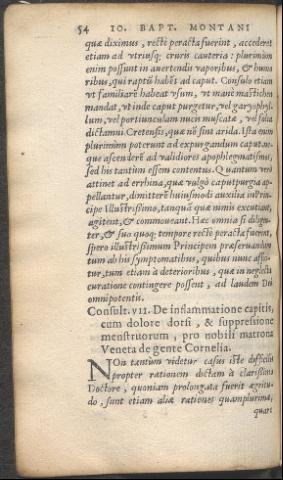 54 IO. BAPT. MONTANI
quæ diximus, rectè peracta fuerint, accederet
etiam ad vtriusq; cruris cauteria: plurimùm
enim possunt in auertendis vaporibus, & humo
ribus, qui raptū habēt ad caput. Consulo etiam
vt familiarē habeat vsum, vt manè mastichen
mandat, vt inde caput purgetur, vel garyophyl-
lum, vel portiunculam nucis muscatæ, vel folia
dictamni Cretensis, quæ nō sint arida. Ista enim
plurimùm poterunt ad expurgandum caput, ne-
que ascenderē ad validiores apophlegmatismus,
sed his tantùm essem contentus. Quantum verò
attinet ad errhina, quæ vulgò caputpurgia ap-
pellantur, dimitterē huiusmodi auxilia in prin-
cipe Illustrissimo, tanquā quæ nimis excutiant,
agitent, & commoueant. Hæc omnia si dilige-
ter, & suo quoq; tempore rectè peracta fuerint,
spero illustrissimum Principem præseruandum
tum ab his symptomatibus, quibus nunc affici-
tur, tum etiam à deterioribus, quæ in neglectu
curatione contingere possent, ad laudem Dei
omnipotentis.
Consult. VII. De inflammatione capitis,
cum dolore dorsi, & suppressione
menstruorum, pro nobili matrona
Veneta de gente Cornelia.
NOn tantùm videtur casus iste difficilis
propter rationem dictam à clarissimo
Doctore, quoniam prolongata fuerit ægritu-
do, sunt etiam aliæ rationes quamplurimæ,
quare